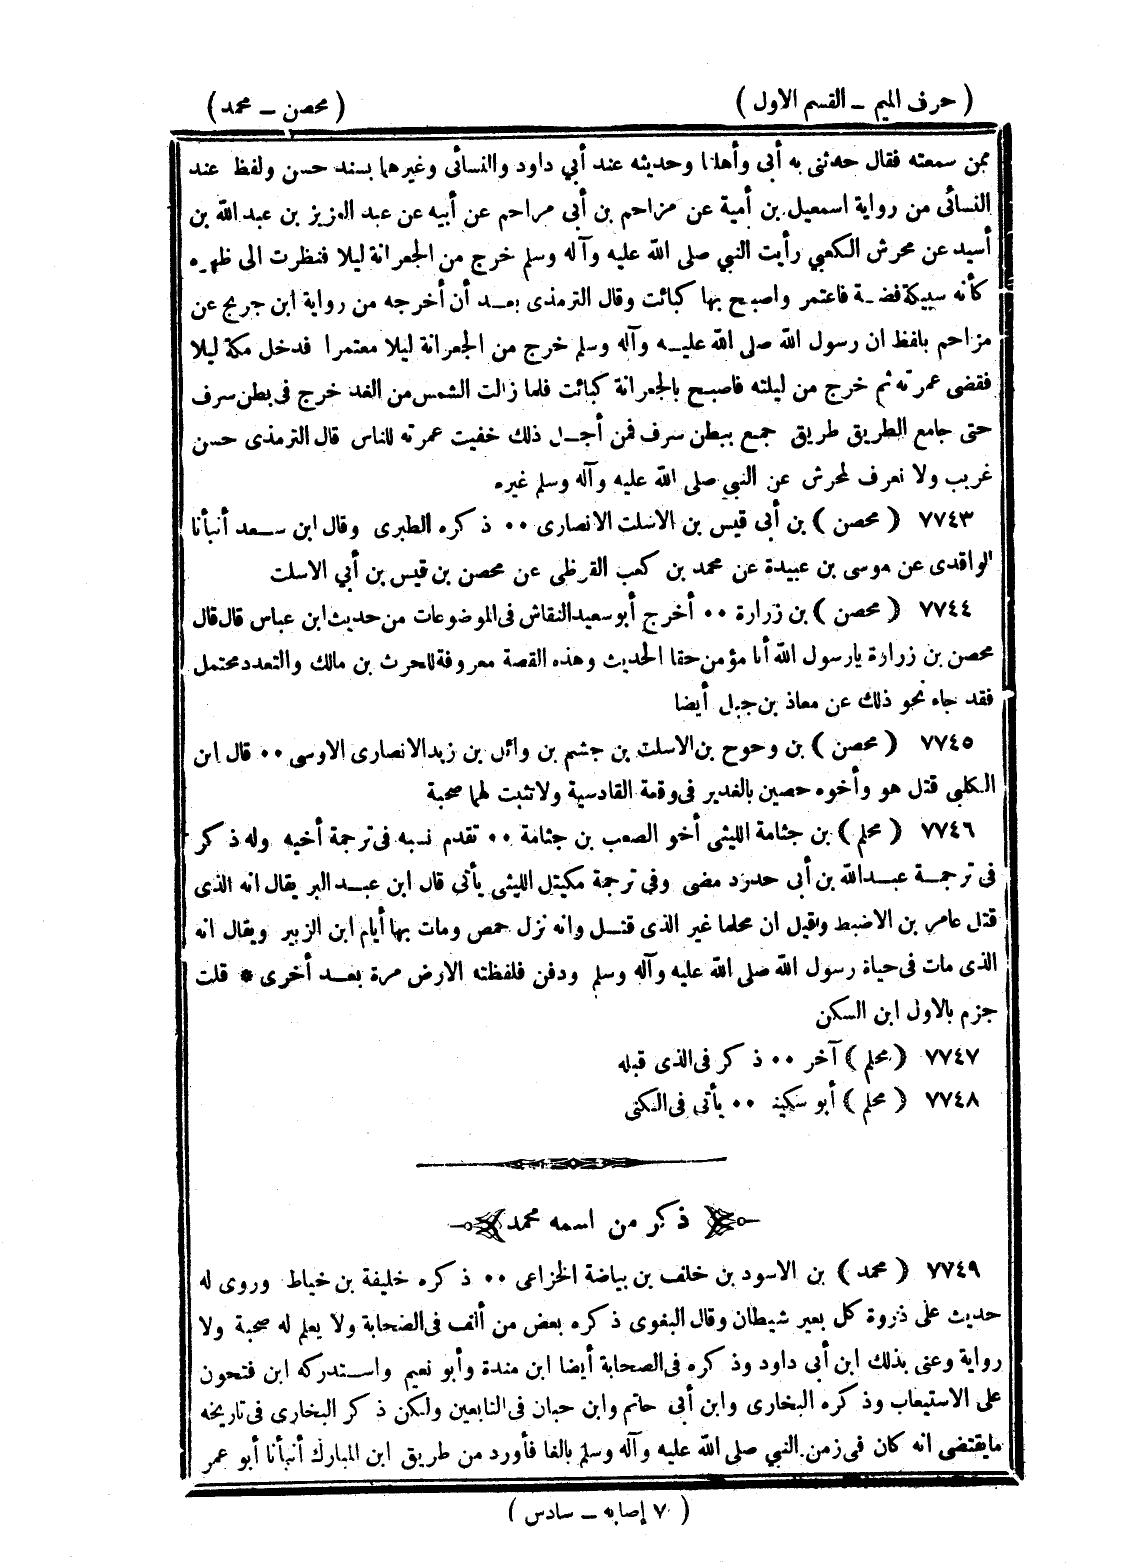 ( حرف الميم ــ القسم الاول ) ( محصن ــ محمد )
ممن سمعته فقال حدثنى به أبى وأهلنا وحديثه عند أبي داود والنسائى وغيرهما بسند حسن ولفظ عند
النسائى من رواية اسمعيل بن أمية عن مزاحم بن أبى مراحم عن أبيه عن عبد العزيز بن عبد الله بن
أسيد عن محرش الكعبي رأيت النبي صلى الله عليه وآله وسلم خرج من الجعرانة ليلا فنظرت الى ظهره
كأنه سبيكة فضة فاعتمر واصبح بها كبائت وقال الترمذى بعد أن أخرجه من رواية ابن جريج عن
مزاحم بلفظ ان رسول الله صلى الله عليه وآله وسلم خرج من الجعرانة ليلا معتمرا فدخل مكة ليلا
فقضى عمرته ثم خرج من ليلته فاصبح بالجعرانة كبائت فلما زالت الشمس من الغد خرج فى بطن سرف
حتى جامع الطريق طريق جمع ببطن سرف فمن أجل ذلك خفيت عمرته للناس قال الترمذى حسن
غريب ولا نعرف لمحرش عن النبي صلى الله عليه وآله وسلم غيره
٧٧٤٣ ( محصن ) بن أبى قيس بن الاسلت الانصارى ٠٠ ذكره الطبرى وقال ابن سعد أنبأنا
الواقدى عن موسى بن عبيدة عن محمد بن كعب القرظى عن محصن بن قيس بن أبي الاسلت
٧٧٤٤ ( محصن ) بن زرارة ٠٠ أخرج أبو سعيد النقاش فى الموضوعات من حديث ابن عباس قال قال
محصن بن زرارة يارسول الله أنا مؤمن حقا الحديث وهذه القصة معروفة للحرث بن مالك والتعدد محتمل
فقد جاء نحو ذلك عن معاذ بن جبل أيضا
٧٧٤٥ ( محصن ) بن وحوح بن الاسلت بن جشم بن وائل بن زيد الانصارى الاوسى ٠٠ قال ابن
الكلبى قتل هو وأخوه حصين بالغدير فى وقعة القادسية ولا تثبت لهما صحبة
٧٧٤٦ ( محلم ) بن جثامة الليثى أخو الصعب بن جثامة ٠٠ تقدم نسبه فى ترجمة أخيه وله ذكر
فى ترجمة عبد الله بن أبى حدرد مضى وفى ترجمة مكيتل الليثى يأتى قال ابن عبد البر يقال انه الذى
قتل عامر بن الاضبط وقيل ان محلما غير الذى قتل وانه نزل حمص ومات بها أيام ابن الزبير ويقال انه
الذى مات فى حياة رسول الله صلى الله عليه وآله وسلم ودفن فلفظته الارض مرة بعد أخرى * قلت
جزم بالاول ابن السكن
٧٧٤٧ ( محلم ) آخر ٠٠ ذكر فى الذى قبله
٧٧٤٨ ( محلم ) أبو سكينة ٠٠ يأتى فى الكنى
ذكر من اسمه محمد
٧٧٤٩ ( محمد ) بن الاسود بن خلف بن بياضة الخزاعى ٠٠ ذكره خليفة بن خياط وروى له
حديث على ذروة كل بعير شيطان وقال البغوى ذكره بعض من ألف فى الصحابة ولا يعلم له صحبة ولا
رواية وعنى بذلك ابن أبى داود وذكره فى الصحابة أيضا ابن مندة وأبو نعيم واستدركه ابن فتحون
على الاستيعاب وذكره البخارى وابن أبى حاتم وابن حبان فى التابعين ولكن ذكر البخارى فى تاريخه
مايقتضى انه كان فى زمن النبي صلى الله عليه وآله وسلم بالغا فأورد من طريق ابن المبارك أنبأنا أبو عمر
( ٧٠ إصابه ــ سادس )